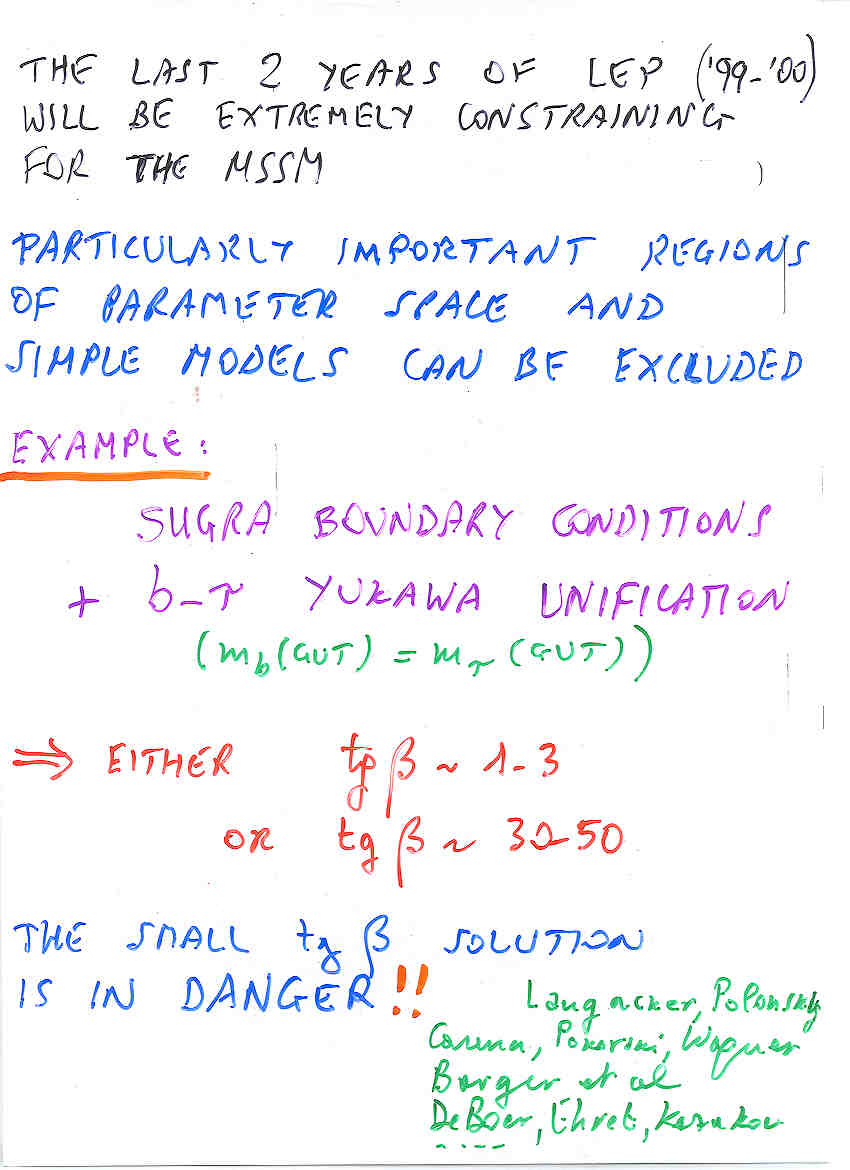 THE LAST 2 YEARS OF LEP ('99-'00)
WILL BE EXTREMELY CONSTRAINING
FOR THE MSSM
PARTICULARLY IMPORTANT REGIONS
OF PARAMETER SPACE AND
SIMPLE MODELS CAN BE EXCLUDED
EXAMPLE:
SUGRA BOUNDARY CONDITIONS
+ b-τ YUKAWA UNIFICATION
(m_b(GUT) = m_τ(GUT))
⇒ EITHER tg β ~ 1-3
OR tg β ~ 30-50
THE SMALL tg β SOLUTION
IS IN DANGER!!
Langacker, Polonsky
Carena, Pokorski, Wagner
Barger et al
DeBoer, Ehret, Kazakov
....